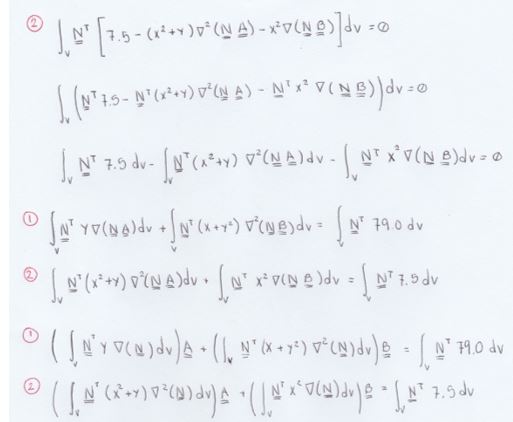 ② ∫_V N^T [7.5 - (x²+y)∇²(N A) - x²∇(N B)] dv = 0
∫_V (N^T 7.5 - N^T (x²+y) ∇²(N A) - N^T x² ∇(N B)) dv = 0
∫_V N^T 7.5 dv - ∫_V N^T (x²+y) ∇²(N A) dv - ∫_V N^T x² ∇(N B) dv = 0
① ∫_V N^T y ∇(N A) dv + ∫_V N^T (x+y²) ∇²(N B) dv = ∫_V N^T 79.0 dv
② ∫_V N^T (x²+y) ∇²(N A) dv + ∫_V N^T x² ∇(N B) dv = ∫_V N^T 7.5 dv
① (∫_V N^T y ∇(N) dv) A + (∫_V N^T (x+y²) ∇²(N) dv) B = ∫_V N^T 79.0 dv
② (∫_V N^T (x²+y) ∇²(N) dv) A + (∫_V N^T x² ∇(N) dv) B = ∫_V N^T 7.5 dv